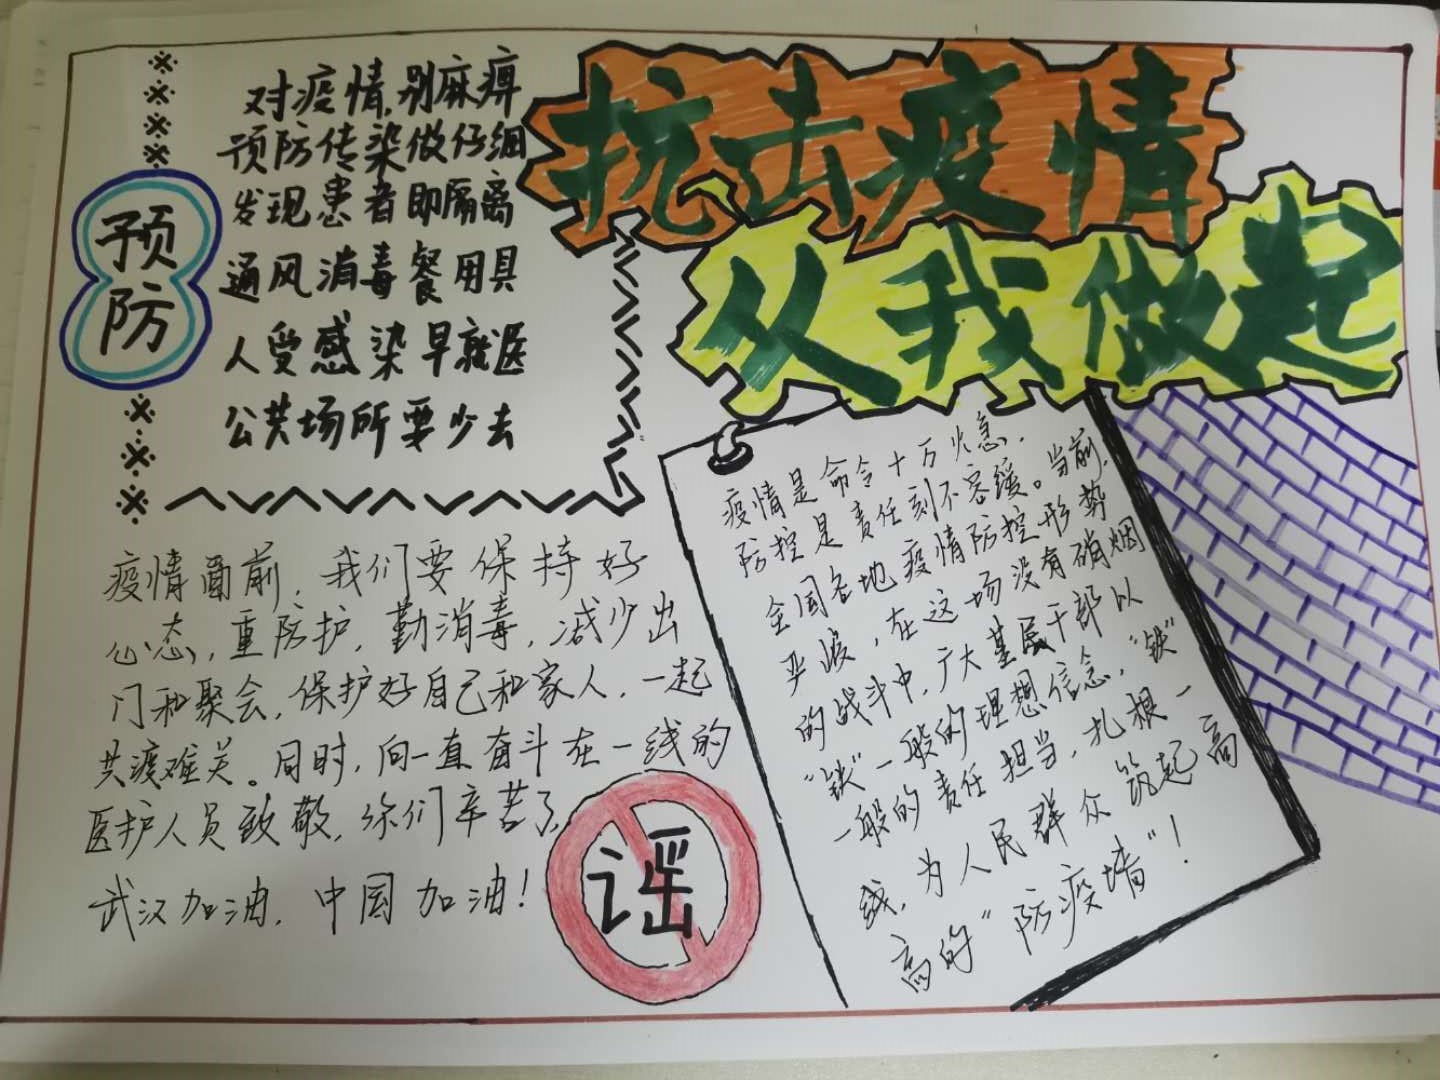 抗击疫情
从我做起
预
防
对疫情,别麻痹
预防传染做仔细
发现患者即隔离
通风消毒餐用具
人受感染早就医
公共场所要少去
疫情面前,我们要保持好
心态,重防护,勤消毒,减少出
门和聚会,保护好自己和家人,一起
共渡难关。同时,向一直奋斗在一线的
医护人员致敬,你们辛苦了,
武汉加油,中国加油!
谣
疫情是命令十万火急,
防控是责任刻不容缓。当前,
全国各地疫情防控形势
严峻,在这场没有硝烟
的战斗中,广大基层干部以
“铁”一般的理想信念,“铁”
一般的责任担当,扎根一
线,为人民群众筑起高
高的“防疫墙”!